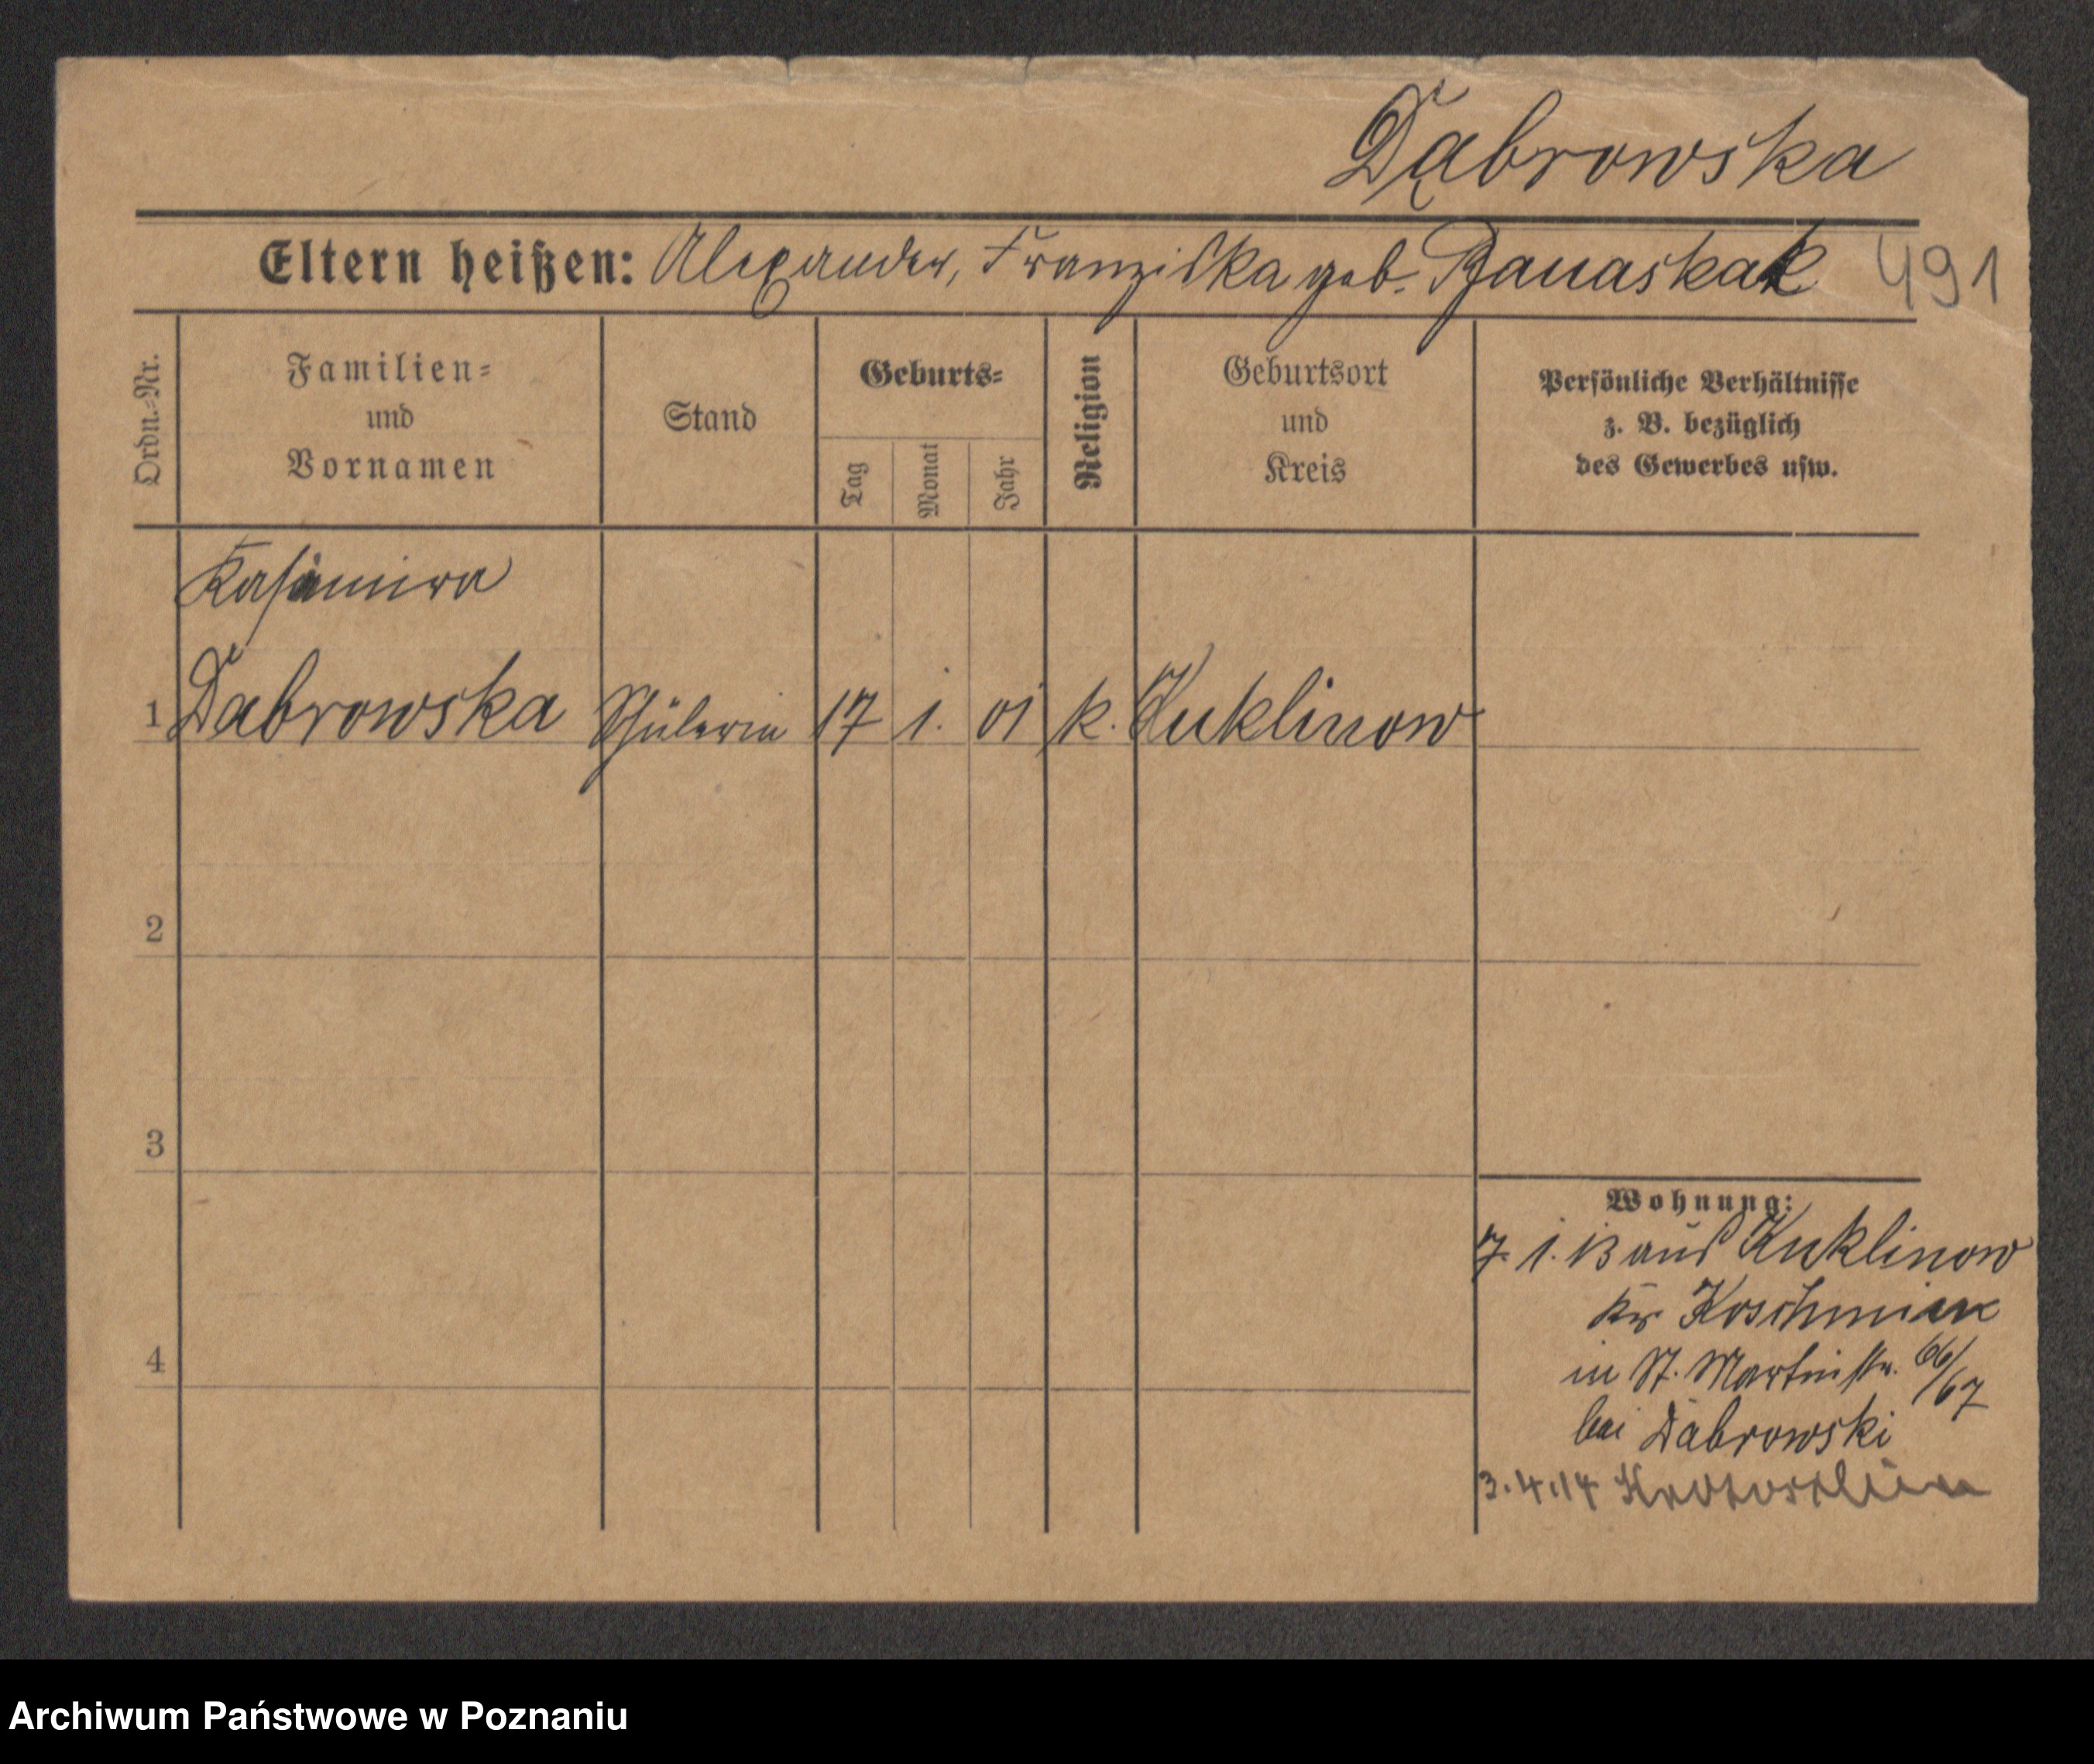 Dąbrowska
Eltern heißen: Alexander, Franziska geb. Banaskak 491
Ordn.-Nr.
Familien-
und
Vornamen
Stand
Geburts-
Tag
Monat
Jahr
Religion
Geburtsort
und
Kreis
Persönliche Verhältnisse
z. B. bezüglich
des Gewerbes usw.
Kasimira
1 Dabrowska Schülerin 17 1. 01 k. Kuklinow
2
3
4
Wohnung:
7. 1. 13 aus Kuklinow
Kr Koschmin
in St. Martinstr. 66/67
bei Dabrowski
3.4.14 Krotoschin
Archiwum Państwowe w Poznaniu